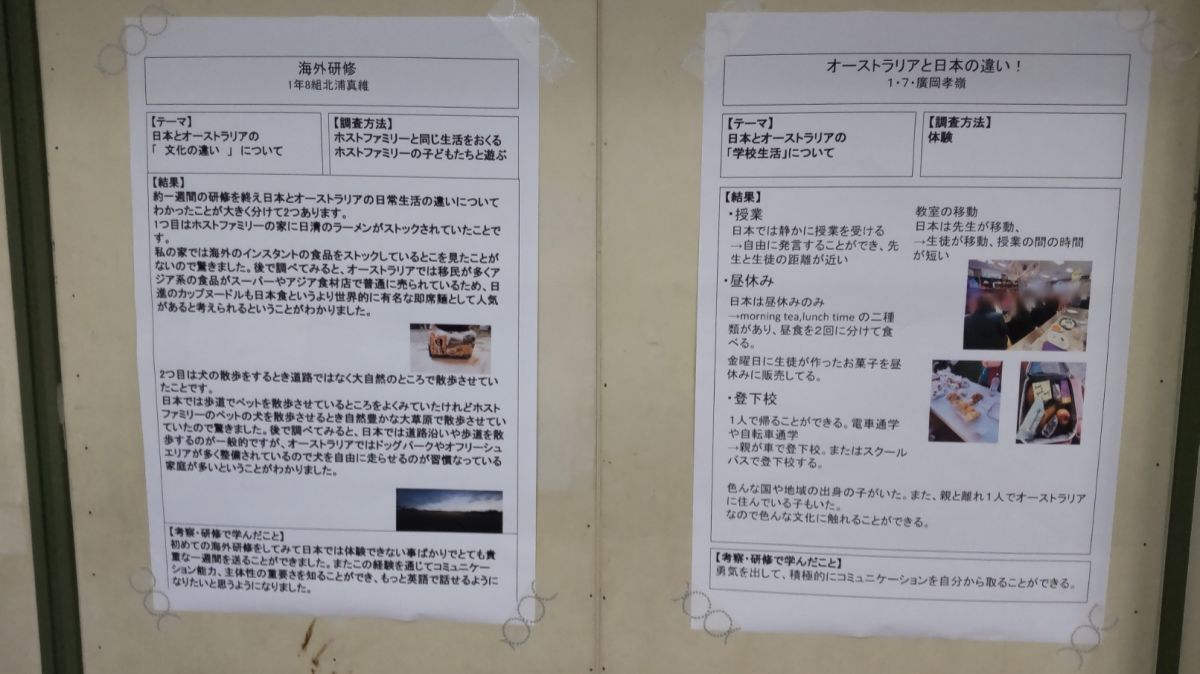 海外研修
1年8組北浦真維
【テーマ】
日本とオーストラリアの
「 文化の違い 」 について
【調査方法】
ホストファミリーと同じ生活をおくる
ホストファミリーの子どもたちと遊ぶ
【結果】
約一週間の研修を終え日本とオーストラリアの日常生活の違いについて
わかったことが大きく分けて2つあります。
1つ目はホストファミリーの家に日清のラーメンがストックされていたことで
す。
私の家では海外のインスタントの食品をストックしているとこを見たことが
ないので驚きました。後で調べてみると、オーストラリアでは移民が多くア
ジア系の食品がスーパーやアジア食材店で普通に売られているため、日
進のカップヌードルも日本食というより世界的に有名な即席麺として人気
があると考えられるということがわかりました。
2つ目は犬の散歩をするとき道路ではなく大自然のところで散歩させてい
たことです。
日本では歩道でペットを散歩させているところをよくみていたけれどホスト
ファミリーのペットの犬を散歩させるとき自然豊かな大草原で散歩させてい
ていたので驚きました。後で調べてみると、日本では道路沿いや歩道を散
歩するのが一般的ですが、オーストラリアではドッグパークやオフリーシュ
エリアが多く整備されているので犬を自由に走らせるのが習慣なっている
家庭が多いということがわかりました。
【考察・研修で学んだこと】
初めての海外研修をしてみて日本では体験できない事ばかりでとても貴
重な一週間を送ることができました。またこの経験を通じてコミュニケー
ション能力、主体性の重要さを知ることができ、もっと英語で話せるように
なりたいと思うようになりました。
オーストラリアと日本の違い！
1・7・廣岡孝嶺
【テーマ】
日本とオーストラリアの
「学校生活」について
【調査方法】
体験
【結果】
・授業
日本では静かに授業を受ける
→自由に発言することができ、先
生と生徒の距離が近い
・昼休み
日本は昼休みのみ
→morning tea,lunch time の二種
類があり、昼食を2回に分けて食
べる。
金曜日に生徒が作ったお菓子を昼
休みに販売してる。
・登下校
1人で帰ることができる。電車通学
や自転車通学
→親が車で登下校。またはスクール
バスで登下校する。
教室の移動
日本は先生が移動、
→生徒が移動、授業の間の時間
が短い
色んな国や地域の出身の子がいた。また、親と離れ1人でオーストラリア
に住んでいる子もいた。
なので色んな文化に触れることができる。
【考察・研修で学んだこと】
勇気を出して、積極的にコミュニケーションを自分から取ることができる。